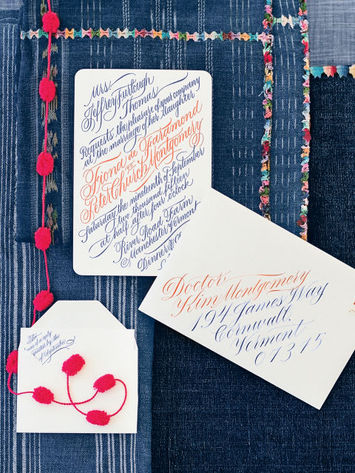 Mrs.
Jeffrey Furlough
Thomas
Requests the pleasure of your company
at the marriage of her daughter
Fiona Faramond
to
Peter Church Montgomery
Saturday the nineteenth of September
two thousand fifteen
at half after four o'clock
River Road Farm
Manchester, Vermont
Dinner
Doctor
Kim Montgomery
194 James Way
Cornwall,
Vermont
01315
The